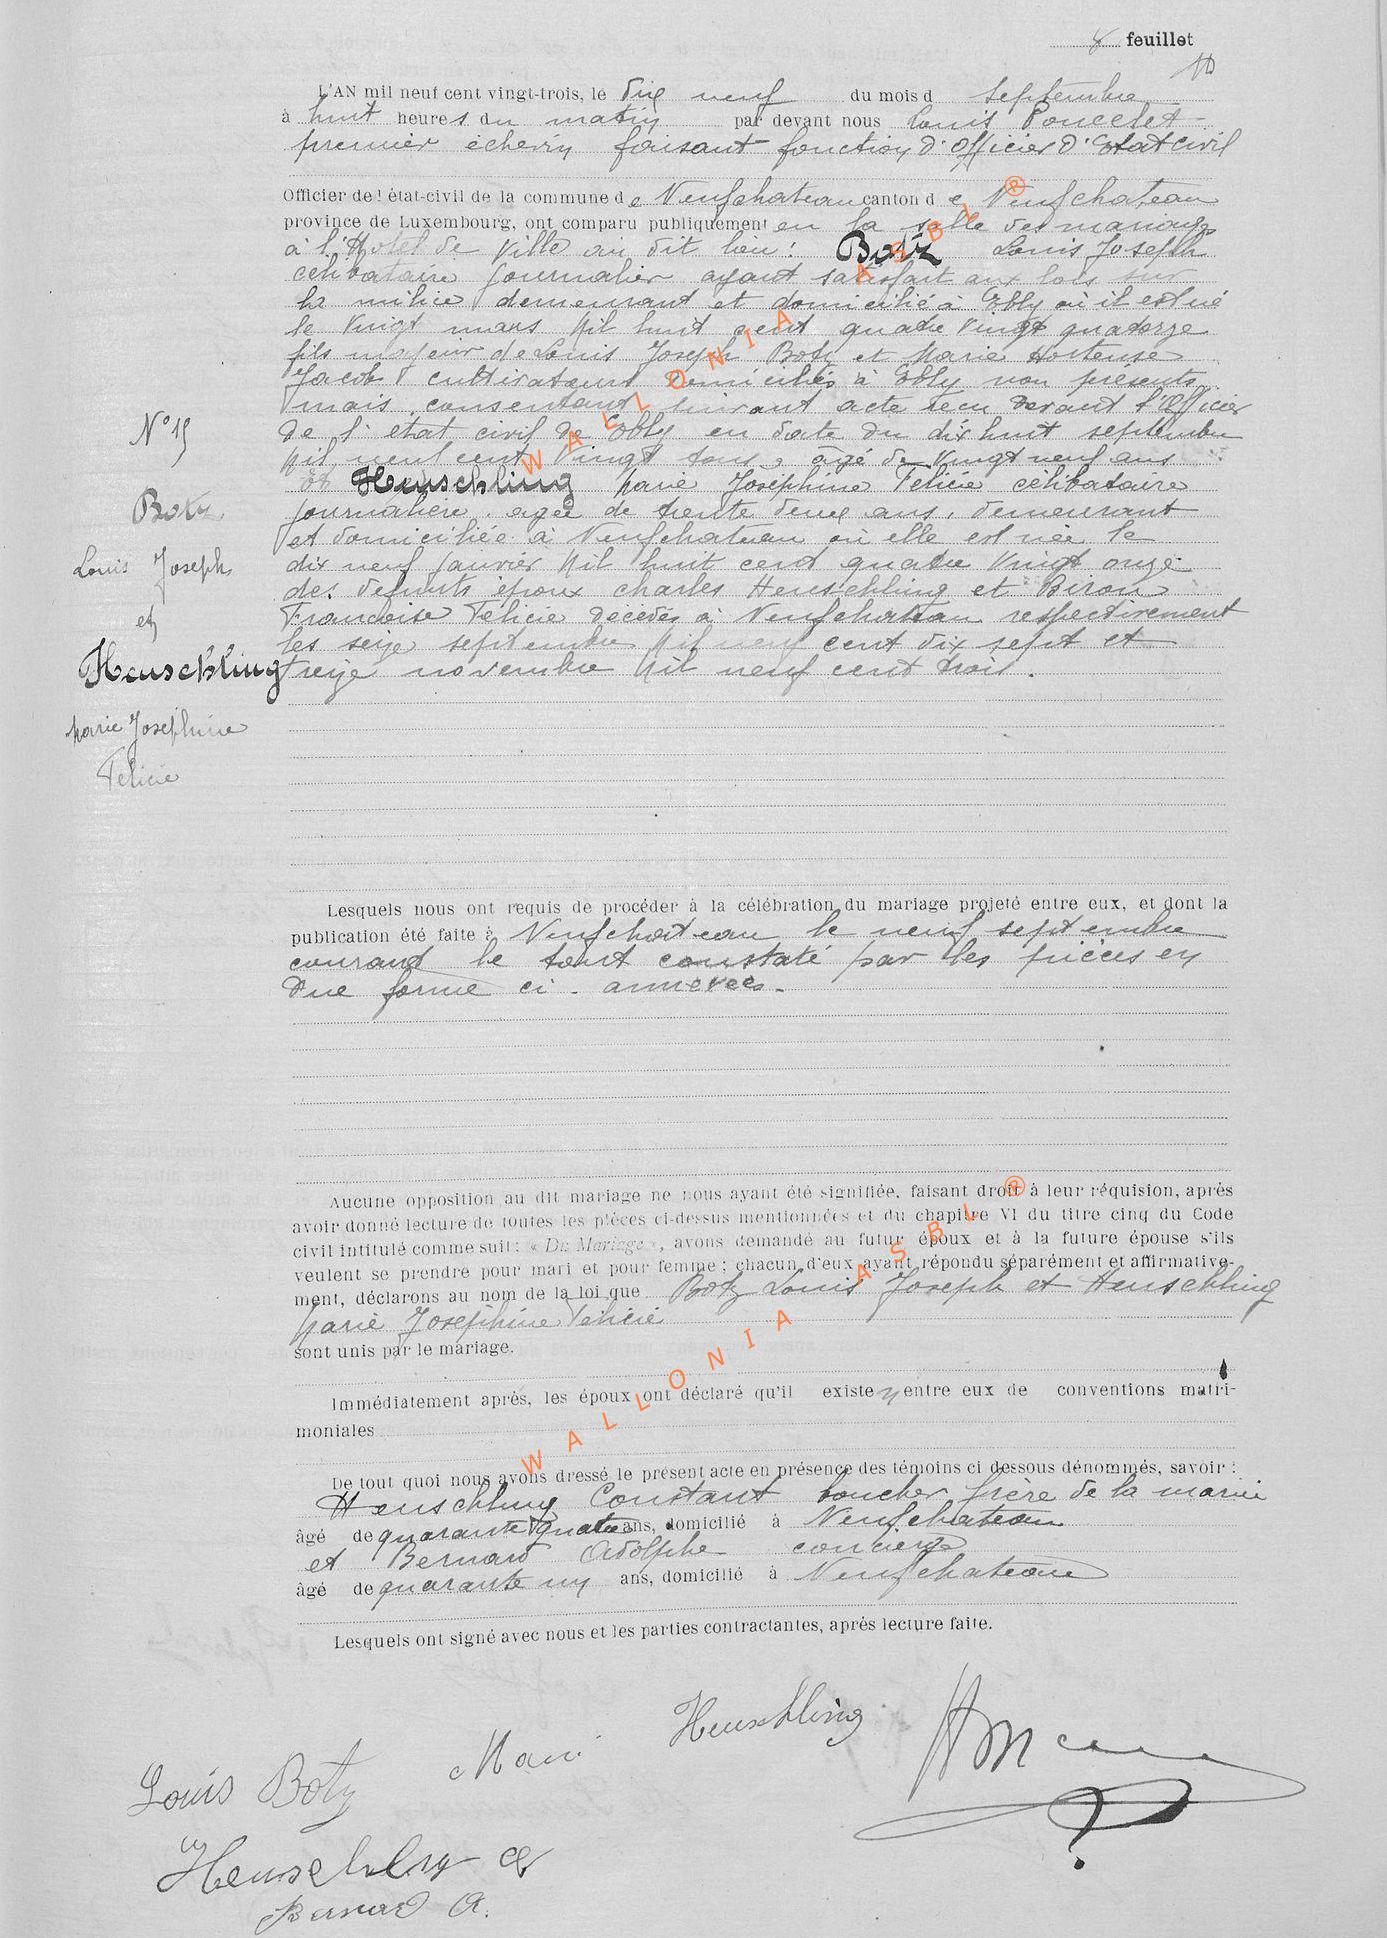 8 feuillet
L'AN mil neuf cent vingt-trois, le dix neuf du mois d septembre
à huit heures du matin par devant nous Louis Poncelet
premier échevin faisant fonction d'Officier d'Etat civil
Officier de l'état-civil de la commune de Neufchateau canton de Neufchateau
province de Luxembourg, ont comparu publiquement en la salle des mariages
à l'Hotel de Ville au dit lieu: Botz Louis Joseph
célibataire journalier ayant satisfait aux lois sur
la milice demeurant et domicilié à Ebly où il est né
le vingt mars mil huit cent quatre vingt quatorze
fils majeur de Louis Joseph Botz et Marie Hortense
Jacob cultivateurs domiciliés à Ebly non présents
mais consentant suivant acte recu devant l'Officier
de l'état civil de Ebly en date du dix huit septembre
mil neuf cent vingt trois, âgé de vingt neuf ans
et Heuschling Marie Joséphine Félicie célibataire
journalière, agée de trente deux ans, demeurant
et domiciliée à Neufchateau où elle est née le
dix neuf janvier mil huit cent quatre vingt onze
des défunts époux Charles Heuschling et Biron
Francoise Félicie décédés à Neufchateau respectivement
les seize septembre mil neuf cent dix sept et
treize novembre mil neuf cent trois.
N° 15
Botz
Louis Joseph
et
Heuschling
Marie Joséphine
Félicie
Lesquels nous ont requis de procéder à la célébration du mariage projeté entre eux, et dont la
publication été faite à Neufchateau le neuf septembre
courant le tout constaté par les pièces en
due forme ci-annexées.
Aucune opposition au dit mariage ne nous ayant été signifiée, faisant droit à leur réquision, après
avoir donné lecture de toutes les pièces ci-dessus mentionnées et du chapitre VI du titre cinq du Code
civil intitulé comme suit: « Du Mariage », avons demandé au futur époux et à la future épouse s'ils
veulent se prendre pour mari et pour femme; chacun d'eux ayant répondu séparément et affirmative-
ment, déclarons au nom de la loi que Botz Louis Joseph et Heuschling
Marie Joséphine Félicie
sont unis par le mariage.
Immédiatement après, les époux ont déclaré qu'il existe entre eux de conventions matri-
moniales
De tout quoi nous avons dressé le présent acte en présence des témoins ci dessous dénommés, savoir:
Heuschling Constant boucher frère de la mariée
âgé de quarante quatre ans, domicilié à Neufchateau
et Bernard Adolphe concierge
âgé de quarante un ans, domicilié à Neufchateau
Lesquels ont signé avec nous et les parties contractantes, après lecture faite.
Louis Botz Marie Heuschling
Heuschling
Bernard A.
WALLONIA ASBL ®
WALLONIA ASBL ®